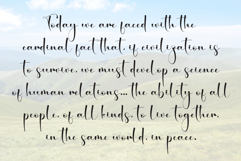 Today we are faced with the
cardinal fact that, if civilization is
to survive, we must develop a science
of human relations...the ability of all
people, of all kinds, to live together,
in the same world, in peace.